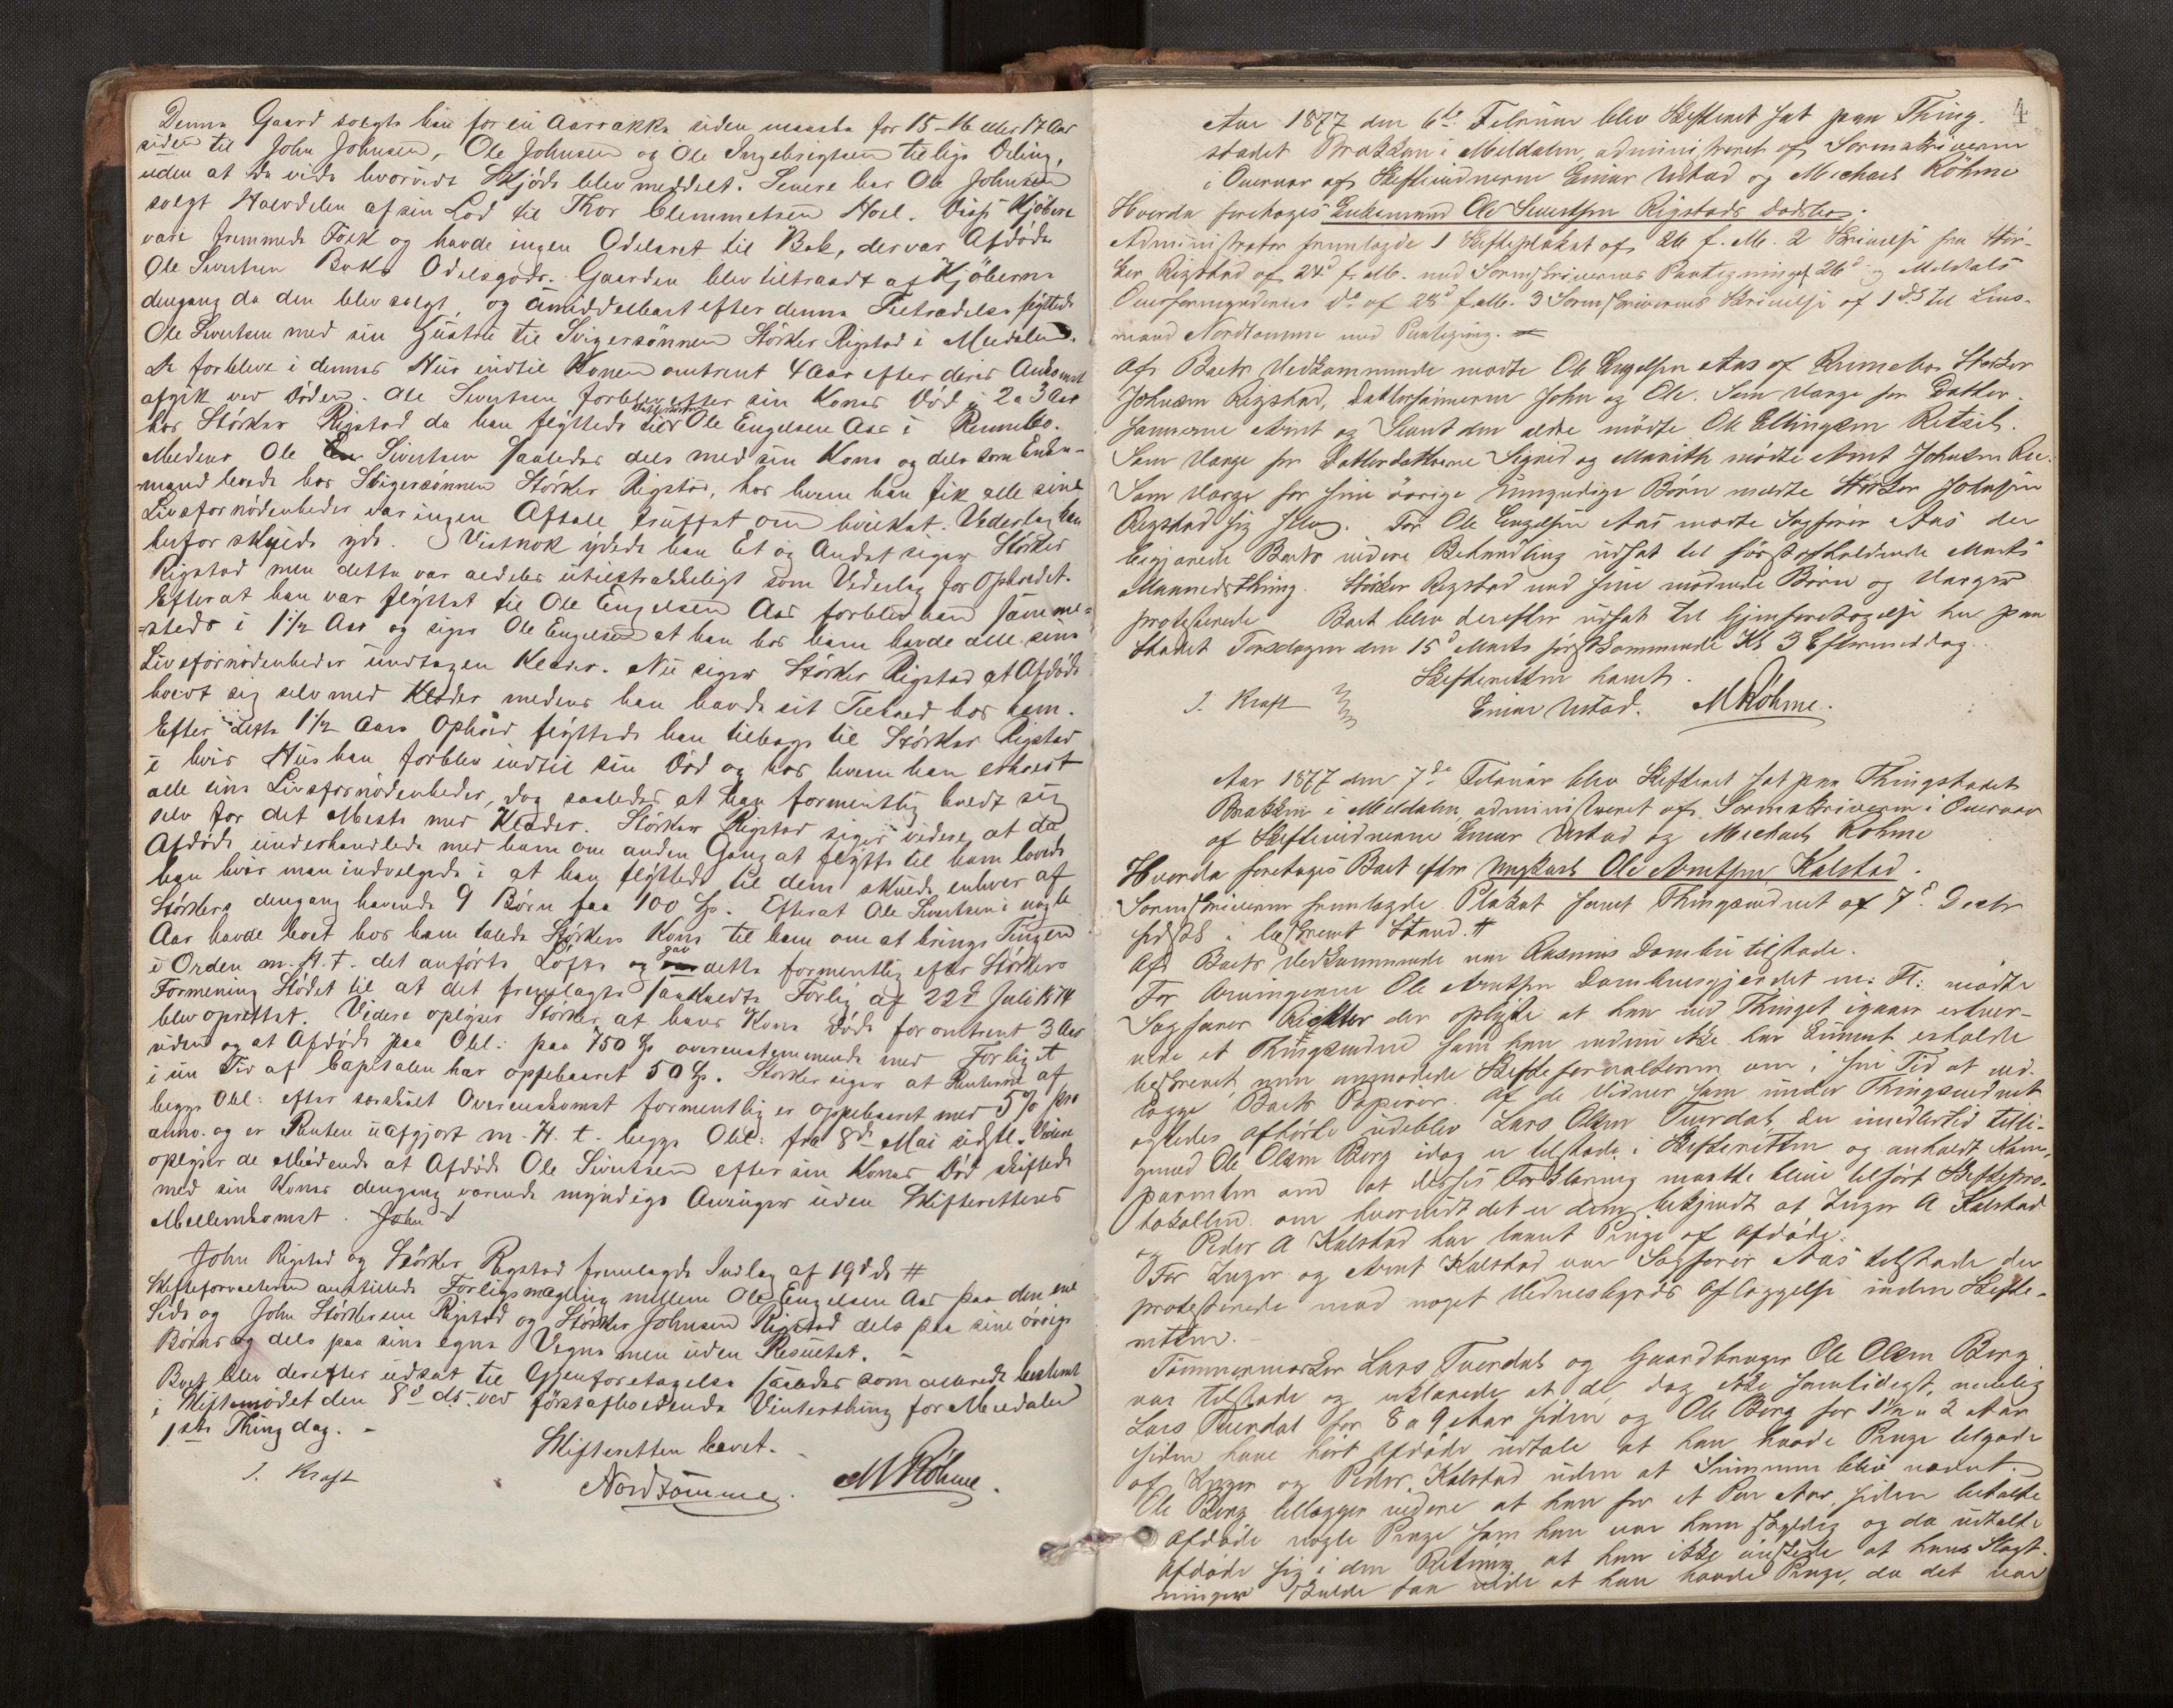 Denne Gaard solgte han for en Aarrække siden maaske for 15-16 eller 17 Aar
siden til John Johnsen, Ole Johnsen og Ole Ingebrigtsen tilligs Deling,
uden at de vide hvorvidt Skjöde blev meddelt. Senere har Ole Johnsen
solgt Halvdelen af sin Lod til Thor Clemmetsen Hoel. Disse Kjöbere
vare fremmede Folk og havde ingen Odelsret til Bak, der var Afdöde
Ole Sivertsen Baks Odelsgods. Gaarden blev tiltraadt af Kjöberne
dengang da den blev solgt, og umiddelbart efter denne Tiltrædelse flyttede
Ole Sivertsen med sin Hustru til Svigersönnen Störker Rigstad i Meldalen.
De forbleve i dennes Hus indtil Konen omtrent 4 Aar efter deres Ankomst
afgik ved Döden. Ole Sivertsen forblev efter sin Kones Död i 2 a 3 Aar
hos Störker Rigstad da han flyttede til Ole Engelsen Aas i Rennebo.
Medens Ole Sivertsen saaledes dels med sin Kone og dels som Enke-
mand levede hos Svigersönnen Störker Rigstad, hos hvem han fik alle sine
Livsfornödenheder var ingen Aftale truffet om hvilket Vederlag han
herfor skulde yde. Vistnok ydede han Et og Andet siger Störker
Rigstad men dette var aldeles utilstrækkeligt som Vederlag for Opholdet.
Efterat han var flyttet til Ole Engelsen Aas forblev han samme-
steds i 1½ Aar og siger Ole Engelsen at han hos ham havde alle sine
Livsfornödenheder undtagen Klæder. Nu siger Störker Rigstad at Afdöde
holdt sig selv med Klæder medens han havde sit Tilhold hos ham.
Efter dette 1½ Aars Ophold flyttede han tilbage til Störker Rigstad
i hvis Hus han forblev indtil sin Död og hos hvem han erholdt
alle sine Livsfornödenheder, dog saaledes at han formentlig holdt sig
selv for det Meste med Klæder. Störker Rigstad siger videre at da
Afdöde underhandlede med ham om anden Gang at flytte til ham lovede
han hvis man indvilgede i at han flyttede til dem skulde enhver af
Störkers dengang havende 9 Börn faa 100 Sp. Efterat Ole Sivertsen i nogle
Aar havde levet hos ham talede Störkers Kone til ham om at bringe Tingen
i Orden m. H. t. det anförte Löfte og gav dette formentlig efter Störkers
Formening Stödet til at det fremlagte saakaldte Forlig af 22d Juli 1874
blev oprettet. Videre oplyser Störker at hans Kone döde for omtrent 3 Aar
siden og at Afdöde paa Obl: paa 750 Sp overensstemmende med Forliget
i sin Tid af Capitalen har oppebaaret 50 Sp. Störker siger at Renterne af
begge Obl: efter særskilt Overenskomst formentlig er oppebaaret med 5% pro
anno. og er Renten uafgjort m. H. t. begge Obl: fra 8de Mai sidstl. Videre
oplyser de Mödende at Afdöde Ole Sivertsen efter sin Kones Död skiftede
med sin Kones dengang værende myndige Arvinger uden Skifterettens
Mellemkomst. John S
John Rigstad og Störker Rigstad fremlagde Indlæg af 19d ds #
Skifteforvalteren anstillede Forligsmægling mellem Ole Engelsen Aas paa den ene
Side og John Störkersen Rigstad og Störker Johnsen Rigstad dels paa sine övrige
Börns og dels paa sine egne Vegne men uden Resultat. -
Boet blev derefter udsat til Gjenforetagelse saaledes som allerede bestemt
i Skiftemödet den 8d ds. ved förstafholdende Vinterthing for Meldalen
1ste Thingdag. -
Skifteretten hævet.
J. Kraft
Nordtömme. M Röhme.
4
Aar 1877 den 6te Februar blev Skifteret sat paa Thing-
stedet Brækken i Meldalen administreret af Sorenskriveren
i Overvær af Skiftevidnerne Einar Ustad og Michael Röhme
Hvorda foretoges Enkemand Ole Sivertsen Rigstads Dödsbo.
Administrator fremlagde 1 Skifteplakat af 26 f. M. 2 Skrivelse fra Stör-
ker Rigstad af 24d f. M. med Sorenskriverens Paategning af 26d og Meldals
Overformynderies do af 28d f. M. 3 Sorenskriverens Skrivelse af 1 ds til Lens-
mand Nordtömme med Paategning.
Af Boets Vedkommende mödte Ole Engelsen Aas af Rennebo, Störker
Johnsen Rigstad, Dattersönnerne John og Ole. Som Værge for Datter-
sönnerne Arnt og Sivert den eldre mödte Ole Ellingsen Retsel.
Som Værge for Datterdattrene Sigrid og Marith mödte Arnt Johnsen
Som Værge for sine övrige umyndige Börn mödte Störker Johnsen
Rigstad sig selv. For Ole Engelsen Aas mödte Sagförer Aas der
begjærede Boets videre Behandling udsat til förstafholdende Marts
Maanedsthing. Störker Rigstad med sine mödende Börn og Værger
protesterede Boet blev derefter udsat til Gjenforetagelse her paa
Stedet Torsdagen den 15d Marts förstkommende Kl 3 Eftermiddag.
Skifteretten hævet.
J. Kraft Einar Ustad. M Röhme.
Aar 1877 den 7de Februar blev Skifteret sat paa Thingstedet
Brækken i Meldalen administreret af Sorenskriveren i Overvær
af Skiftevidnerne Einar Ustad og Michael Röhme
Hvorda foretoges Boet efter Ungkarl Ole Arntsen Kalstad.
Sorenskriveren fremlagde Plakat samt Thingsvidnet af 7d Decbr
sidstl i beskrevet Stand. #
Af Boets Vedkommende var Rasmus Dombu tilstede.
For Arvingerne Ole Arntsen Dombuesgjerdet m: Fl: mödte
Sagförer Richter der oplyste at han ved Thinget igaar erhver-
vede et Thingsvidne som han endnu ikke har kunnet erholde
beskrevet men anmodede Skifteforvalteren om i sin Tid at ved-
lægge Boets Papirer. Af de Vidner som under Thingsvidnet
agtedes afhörte udeblev Lars Olsen Tuerdal, da imedlertid tilli-
gemed Ole Olsen Berg idag er tilstede i Skifteretten og anholdt Kom-
parenten om at disses Forklaring maatte blive tilfört Skiftepro-
tokollen om hvorvidt det er dem bekjendt at Inger A Kalstad
og Peder A Kalstad har laant Penge af Afdöde.
For Inger og Arnt Kalstad var Sagförer Aas tilstede der
protesterede mod noget Vidnesbyrds Aflæggelse inden Skifte-
retten.
Tömmermester Lars Tuerdal og Gaardbruger Ole Olsen Berg
var tilstede og erklærede at de dog ikke samtidigt, nemlig
Lars Tuerdal for 8 a 9 Aar siden og Ole Berg for 1½ a 2 Aar
siden have hört Afdöde udtale at han havde Penge tilgode
af Inger og Peder Kalstad uden at Summen blev nævnt.
Ole Berg tillægger videre at han for et Par Aar siden betalte
Afdöde nogle Penge som han var ham skyldig og da udtalte
Afdöde sig i den Retning at han ikke önskede at hans Slægt-
ninger skulde faa vide at han havde Penge, da det var